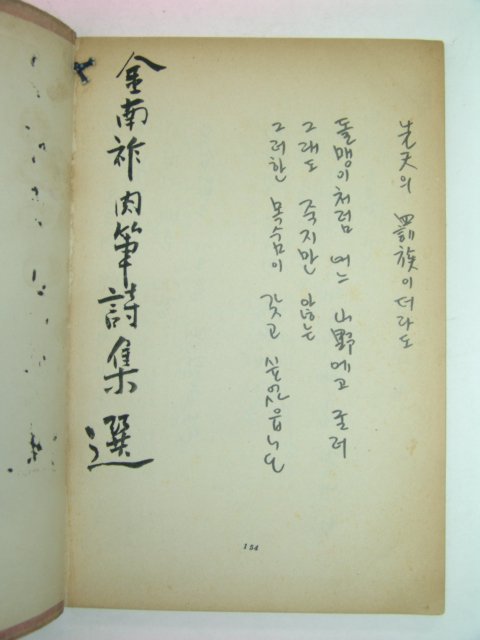 先天의 罰族이더라도
돌맹이처럼 어느 山野에고 굴러
그래도 죽지만 않는
그러한 목숨이 갖고 싶었읍니다
金南祚肉筆詩集選
154